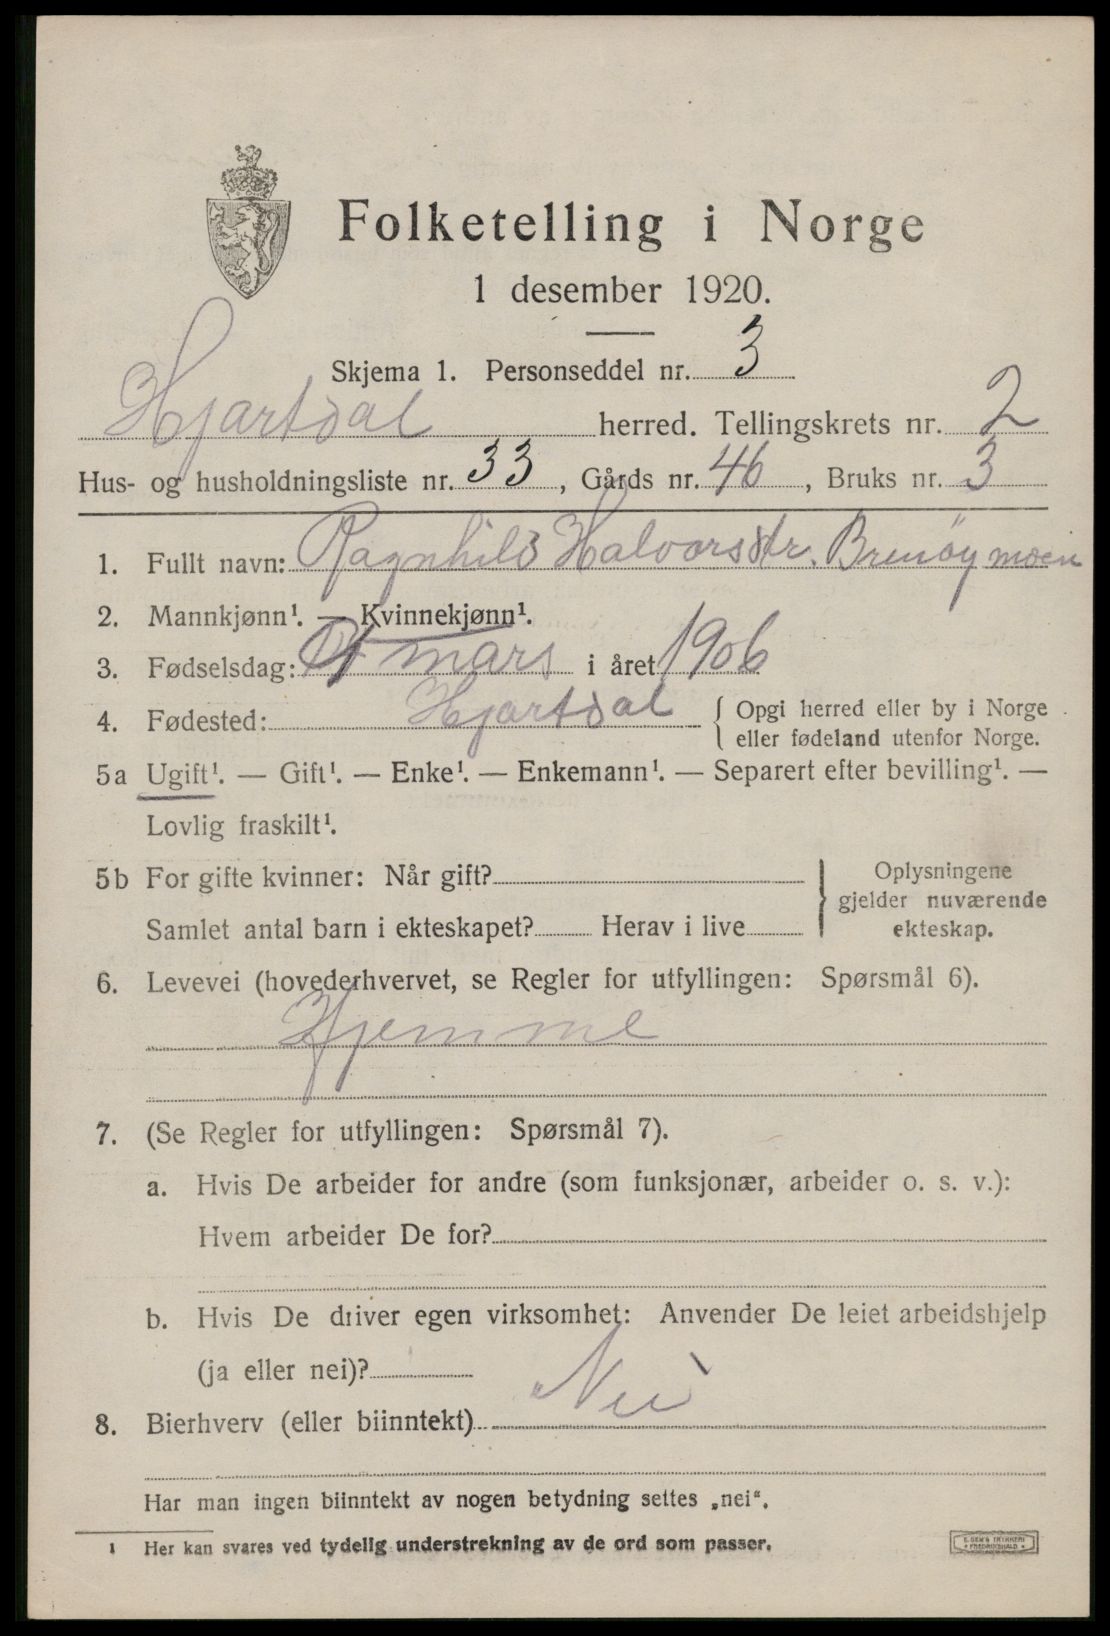 Folketelling i Norge
1 desember 1920.
Skjema 1. Personseddel nr. 3
Hjartdal herred. Tellingskrets nr. 2
Hus- og husholdningsliste nr. 33, Gårds nr. 46, Bruks nr. 3
1. Fullt navn: Ragnhild Halvorsdtr. Brenöymoen
2. Mannkjønn¹. — Kvinnekjønn¹.
3. Fødselsdag: mars i året 1906
4. Fødested: Hjartdal { Opgi herred eller by i Norge
eller fødeland utenfor Norge.
5a Ugift¹. — Gift¹. — Enke¹. — Enkemann¹. — Separert efter bevilling¹. —
Lovlig fraskilt¹.
5b For gifte kvinner: Når gift?
Samlet antal barn i ekteskapet? Herav i live
} Oplysningene
gjelder nuværende
ekteskap.
6. Levevei (hovederhvervet, se Regler for utfyllingen: Spørsmål 6).
Hjemme
7. (Se Regler for utfyllingen: Spørsmål 7).
a. Hvis De arbeider for andre (som funksjonær, arbeider o. s. v.):
Hvem arbeider De for?
b. Hvis De driver egen virksomhet: Anvender De leiet arbeidshjelp
(ja eller nei)?
8. Bierhverv (eller biinntekt) Nei
Har man ingen biinntekt av nogen betydning settes „nei“.
1 Her kan svares ved tydelig understrekning av de ord som passer.
E. SEM'S TRYKKERI
FREDRIKSHALD